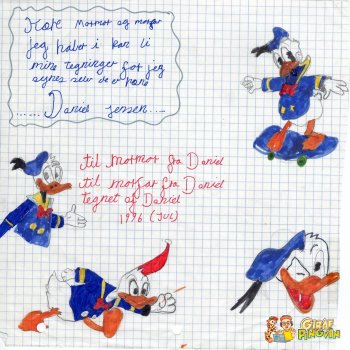 Kære mormor og morfar
jeg håber i kan li
mine tegninger for jeg
synes selv de er pæne
...... Daniel Jensen.....
til mormor fra Daniel
til morfar fra Daniel
tegnet af Daniel
1996 (JUL)
GIRAF
PINGVIN